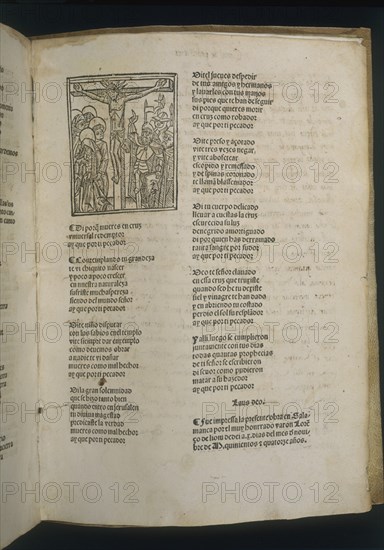 Di porq̃ mueres en cruz
vniuersal redemptor
ay que por ti pecador
Contemplando tu grandeza
te vi chiquito nascer
y poco a poco crescer
en nuestra naturaleza
sufriste mucha pereza
siendo del mundo señor
ay que por ti pecador
Uite niño disputar
con los sabios en el templo
vite siempre dar en templo
como deuemos obrar
a nadie te vi dañar
mueres como mal hechor
ay que por ti pecador
Ui la gran solennidad
que se hizo ramo bien
quando entro en jerusalen
tu diuina magestad
predicaste la verdad
mueres como mal hechor
ay que por ti pecador
Uite el jueues despedir
de tus amigos y hermanos
y lauarles con tus manos
sus pies que te han de seguir
di porque quieres morir
en cruz como robador
ay que por ti pecador
Uite preso y açotado
vite tres vezes negar
y vite abofetear
escopido y remessado
y de spinas coronado
te llamã blasfemador
ay que por ti pecador
Ui tu cuerpo delicado
lleuar a cuestas la cruz
escurecida su luz
denegrido amortiguado
di por quien has derramado
tanta sangre por sudor
ay que por ti pecador
Ueo te señor clauado
en essa cruz que truxiste
quando sed beuer pediste
fiel y vinagre te han dado
y en abriendo tu costado
perdio el sol su resplandor
ay que por ti pecador
Y alli luego se cumplieron
juntamente con tus dias
todas quantas prophecias
de ti señor se escribieron
di señor como pudieron
matar a su hazedor
ay que por ti pecador
Laus deo.
Fue impressa la presente obra en Sala
manca por el muy honrrado varon Lorẽ
ço de liom dedei a .2. dias del mes d̃ nouiẽ
bre de M. quinientos y quatorze años.
PHOTO 12